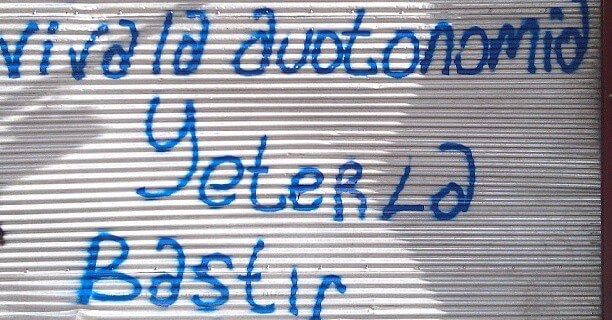 viva la auotonomia
YeteRLa
Bastir